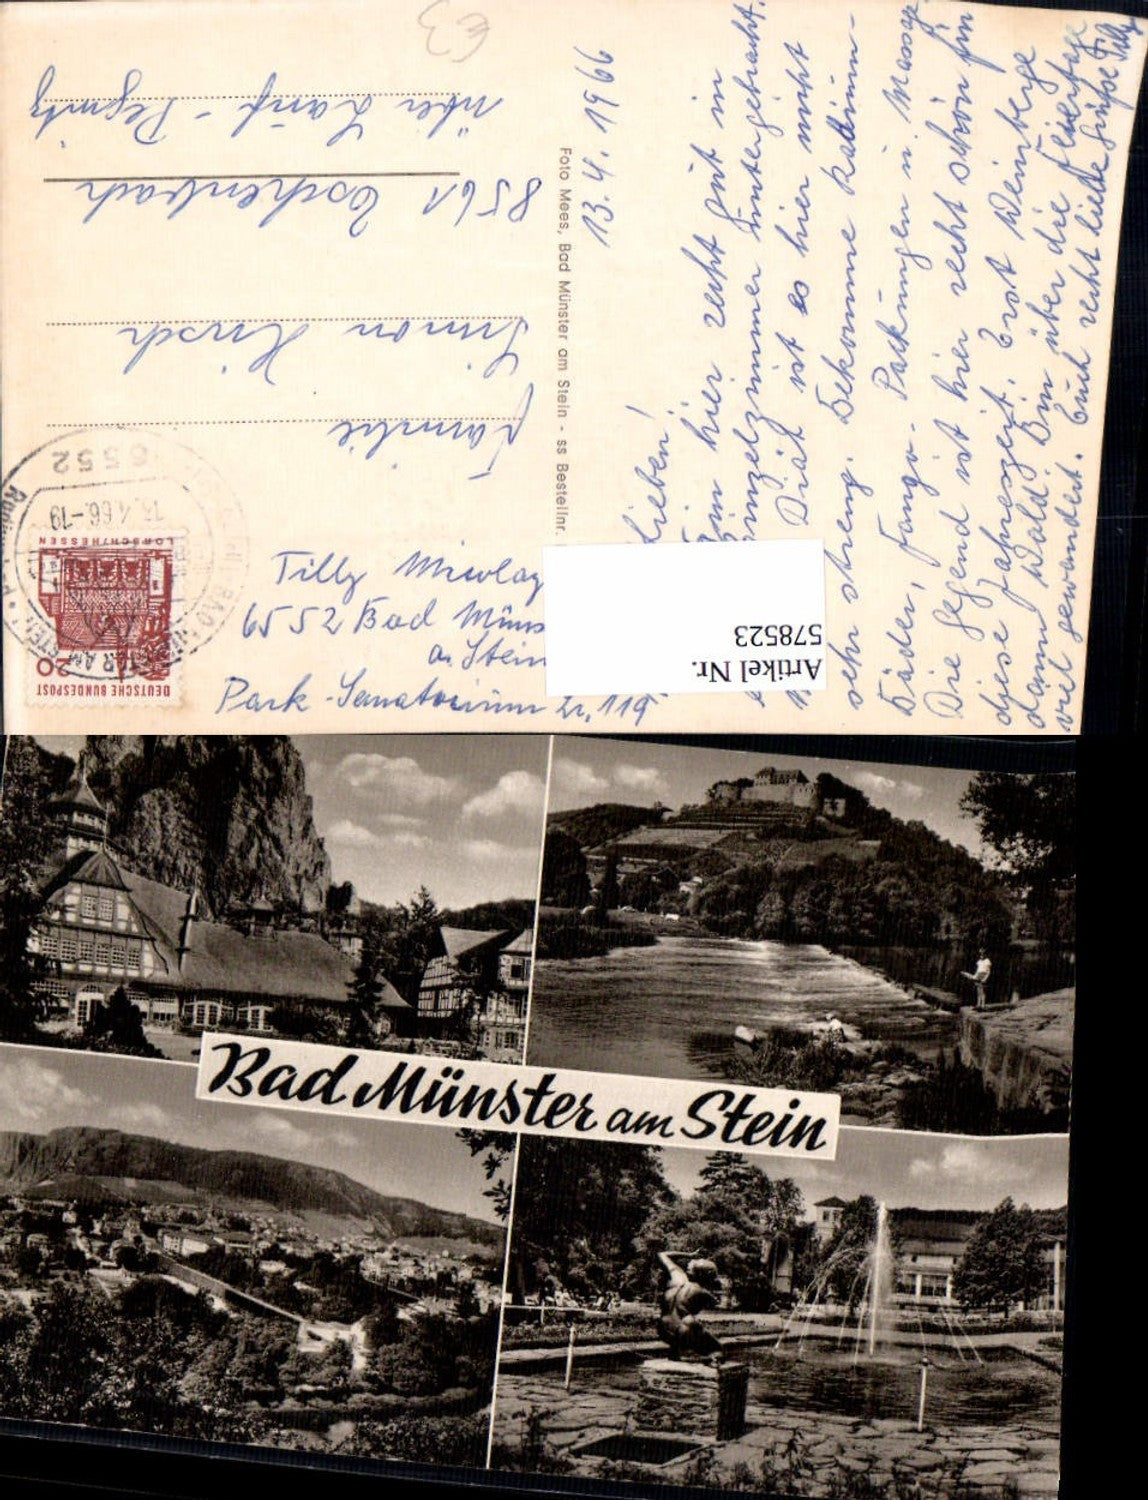 €3
13. 4. 1966
Lieben!
Bin hier recht gut in
Einzelzimmer untergebracht.
Diät ist es hier nicht
sehr streng. Bekomme Radium-
Bäder, Fango- Packungen u. Massage.
Die Gegend ist hier recht schön für
diese Jahreszeit. Erst Weinberge
dann Wald. Bin über die Feiertage
viel gewandert. Euch recht liebe Grüße Tilly
Foto Mees, Bad Münster am Stein - ss Bestellnr.
DEUTSCHE BUNDESPOST
20
LORSCH/HESSEN
6552
13.4.66.-19
BAD MÜNSTER AM STEIN
Familie
Simon Hirsch
8561 Eschenbach
über Lauf - Pegnitz
Tilly
6552 Bad Müns
a. Stein
Park - Sanatorium Zr. 119
Artikel Nr.
578523
Bad Münster am Stein